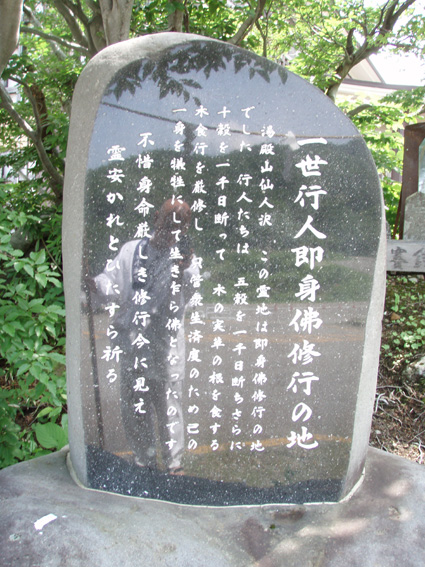 一世行人即身佛修行の地
湯殿山仙人沢 この霊地は即身佛修行の地
でした 行人たちは 五穀を一千日断ちさらに
十穀を一千日断って 木の実草の根を食する
木食行を厳修し 衆生済度のため己の
一身を犠牲にして生き乍ら佛となったのです
不惜身命厳しき修行今に見え
霊安かれとひたすら祈る